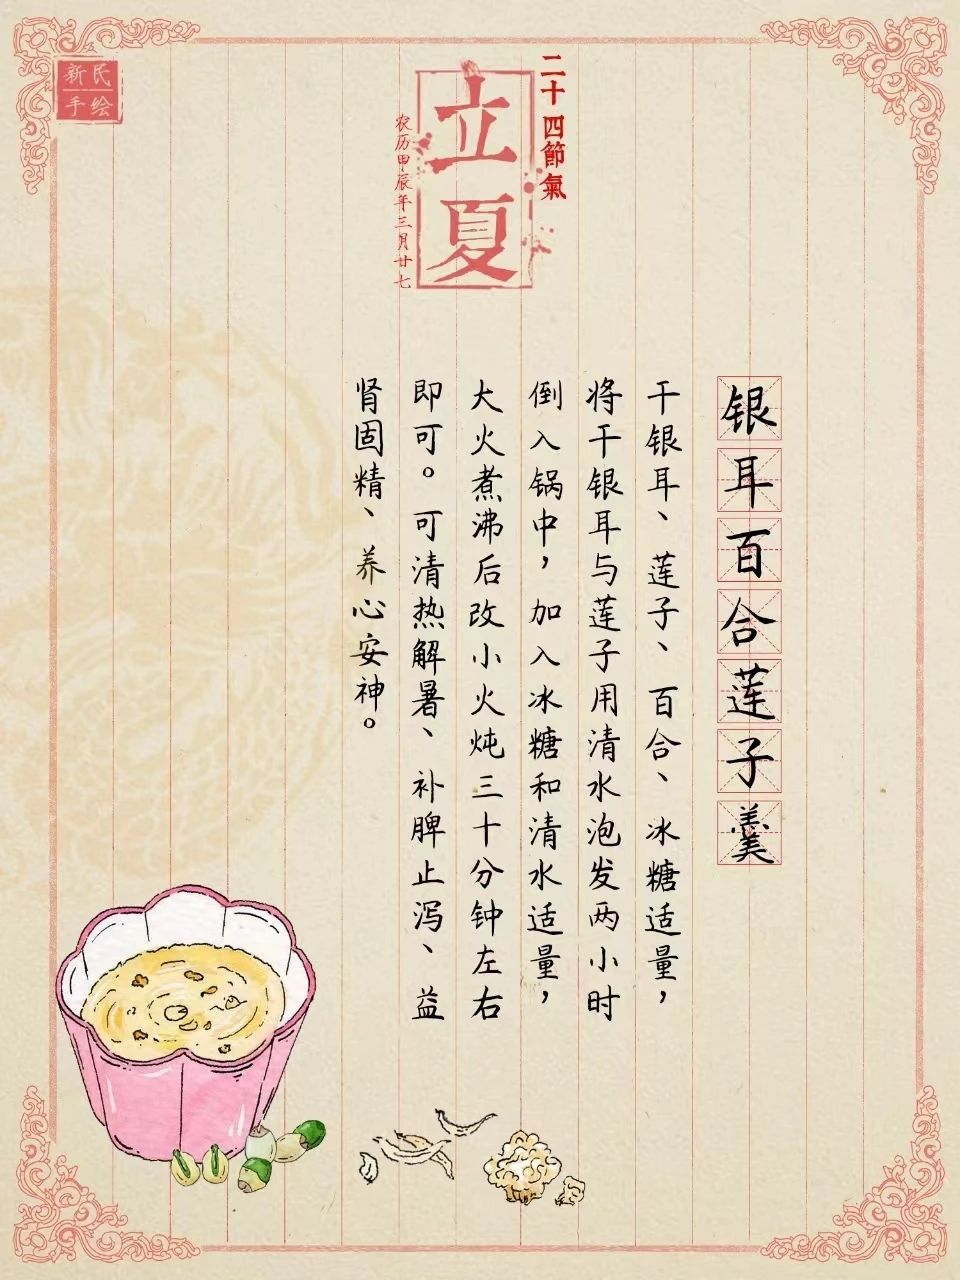 新民
手绘
二十四節氣
立夏
农历甲辰年三月廿七
银耳百合莲子羹
干银耳、莲子、百合、冰糖适量，
将干银耳与莲子用清水泡发两小时
倒入锅中，加入冰糖和清水适量，
大火煮沸后改小火炖三十分钟左右
即可。可清热解暑、补脾止泻、益
肾固精、养心安神。